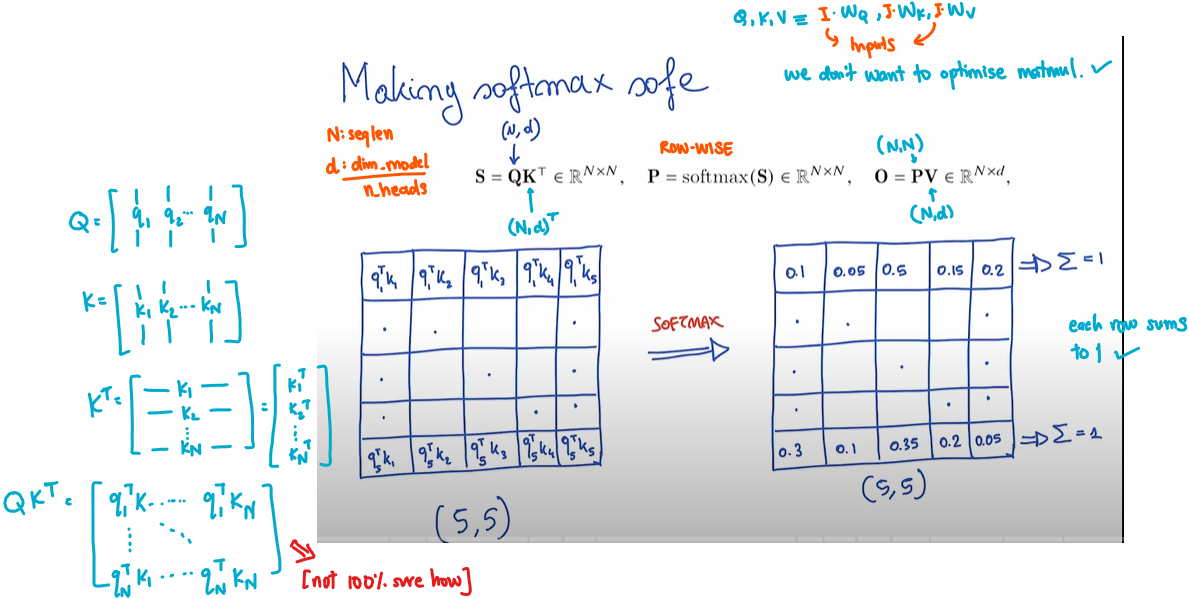 Q, K, V ≡ I·WQ, I·WK, I·WV
Inputs
we don't want to optimise matmul. ✓
Making softmax safe
N: seqlen
d: dim_model
n_heads
(N, d)
ROW-WISE
(N,N)
S = QK⊤ ∈ ℝ^{N×N}, P = softmax(S) ∈ ℝ^{N×N}, O = PV ∈ ℝ^{N×d},
(N,d)^T
(N,d)
Q = [q1 q2 ... qN]
K = [k1 k2 ... kN]
K^T = [— k1 — — k2 — ⋮ — kN —] = [k1^T k2^T ⋮ kN^T]
QK^T = [q1^T K ..... q1^T KN
qN^T K1 ..... qN^T KN]
[not 100% sure how]
q1^T k1 q1^T k2 q1^T k3 q1^T k4 q1^T k5
q5^T k1 q5^T k2 q5^T k3 q5^T k4 q5^T k5
(5,5)
SOFTMAX
0.1 0.05 0.5 0.15 0.2 ⇒ Σ = 1
each row sums
to 1 ✓
0.3 0.1 0.35 0.2 0.05 ⇒ Σ = 1
(5,5)